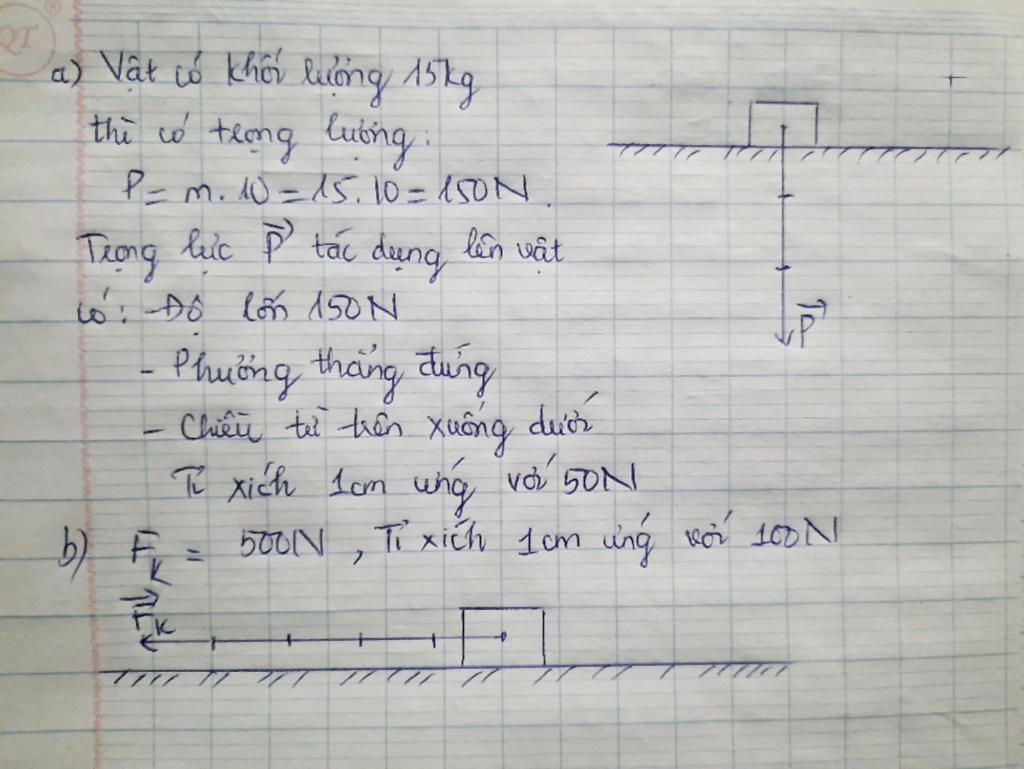 a) Vật có khối lượng 15kg
thì có trọng lượng:
P = m. 10 = 15. 10 = 150N.
Trọng lực P⃗ tác dụng lên vật
có: - Độ lớn 150N
- Phương thẳng đứng
- Chiều từ trên xuống dưới
Tỉ xích 1cm ứng với 50N
P⃗
b) F_K = 500N, Tỉ xích 1cm ứng với 100N
F⃗_K